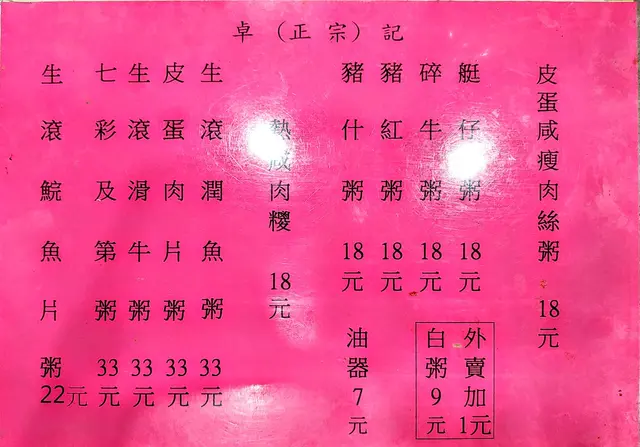 卓（正宗）記
皮蛋咸瘦肉絲粥 18元
艇仔粥 18元
碎牛粥 18元
豬紅粥 18元
豬什粥 18元
外賣加1元
白粥9元
油器7元
熱咸肉糭 18元
生滾潤魚粥 33元
皮蛋肉片粥 33元
生滾滑牛粥 33元
七彩及第粥 33元
生滾鯇魚片粥 22元